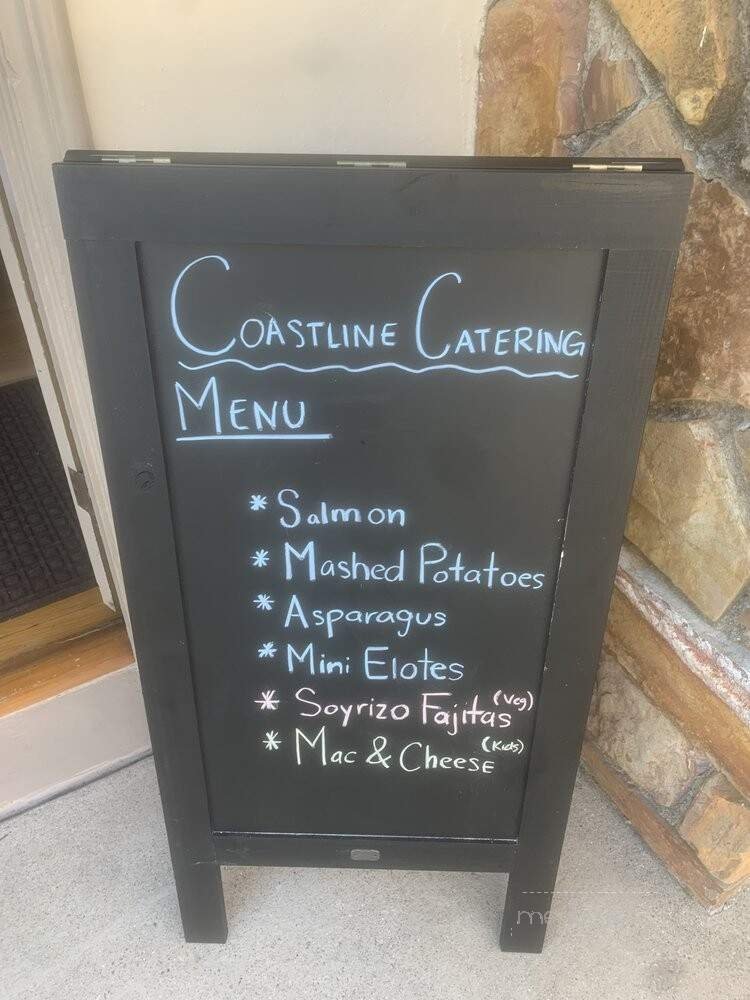 Coastline Catering
Menu
* Salmon
* Mashed Potatoes
* Asparagus
* Mini Elotes
* Soyrizo Fajitas (Veg)
* Mac & Cheese (Kids)